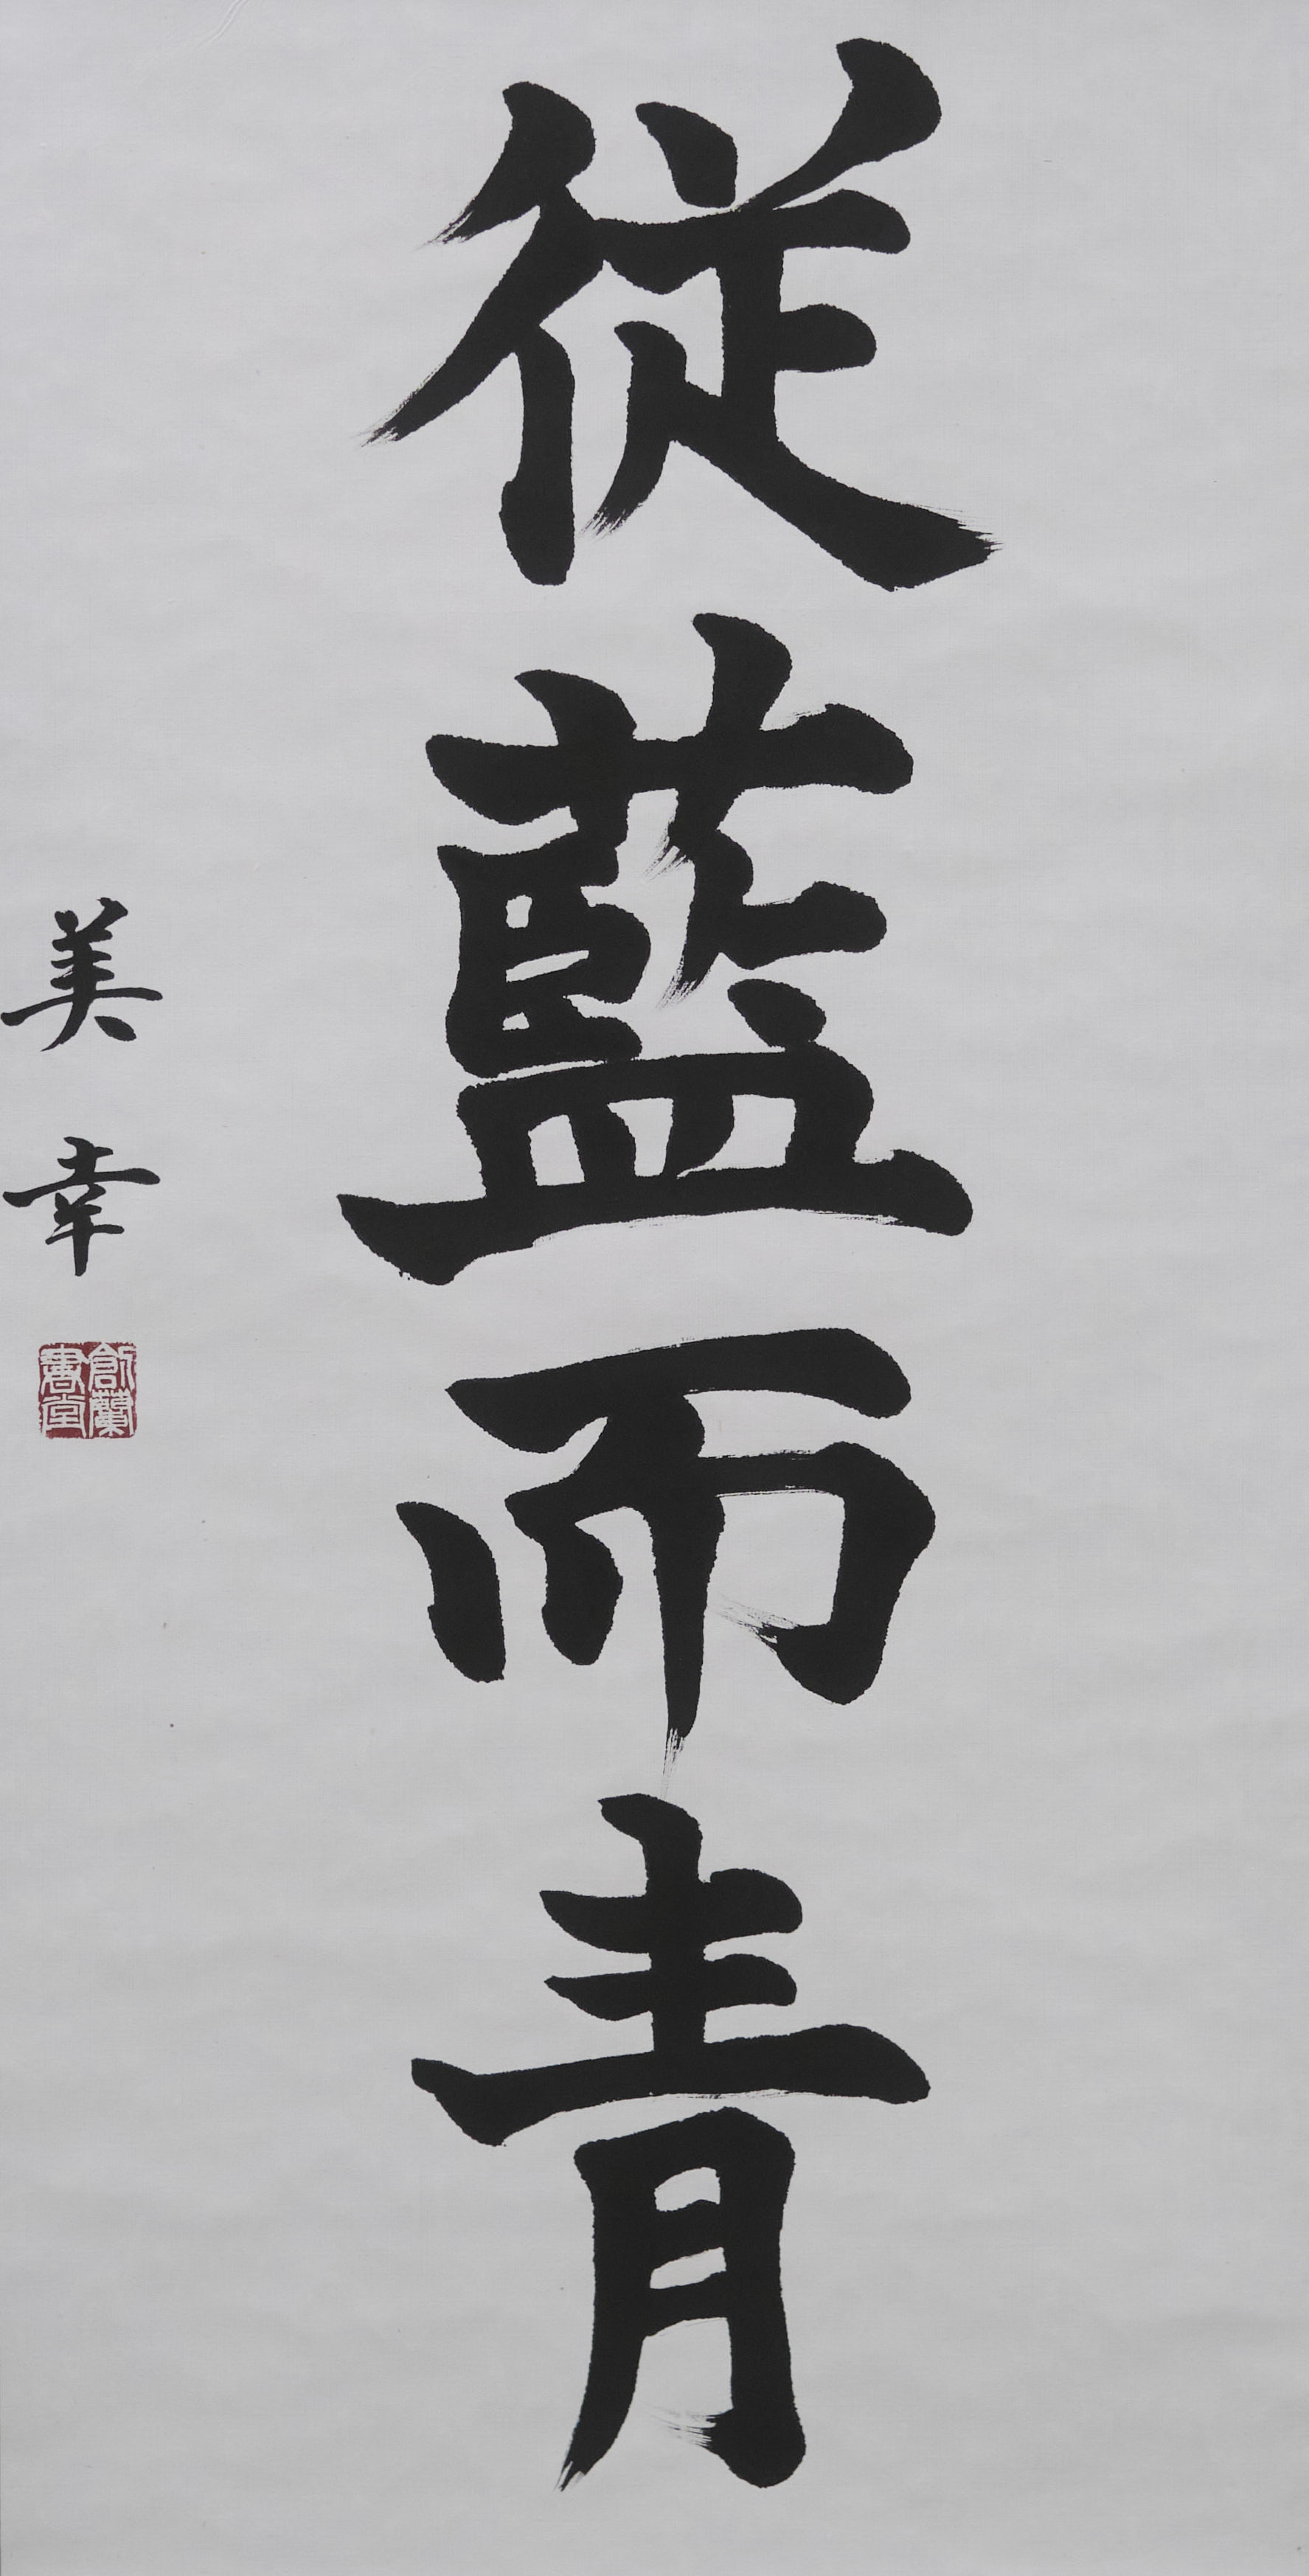 従藍而青
美幸